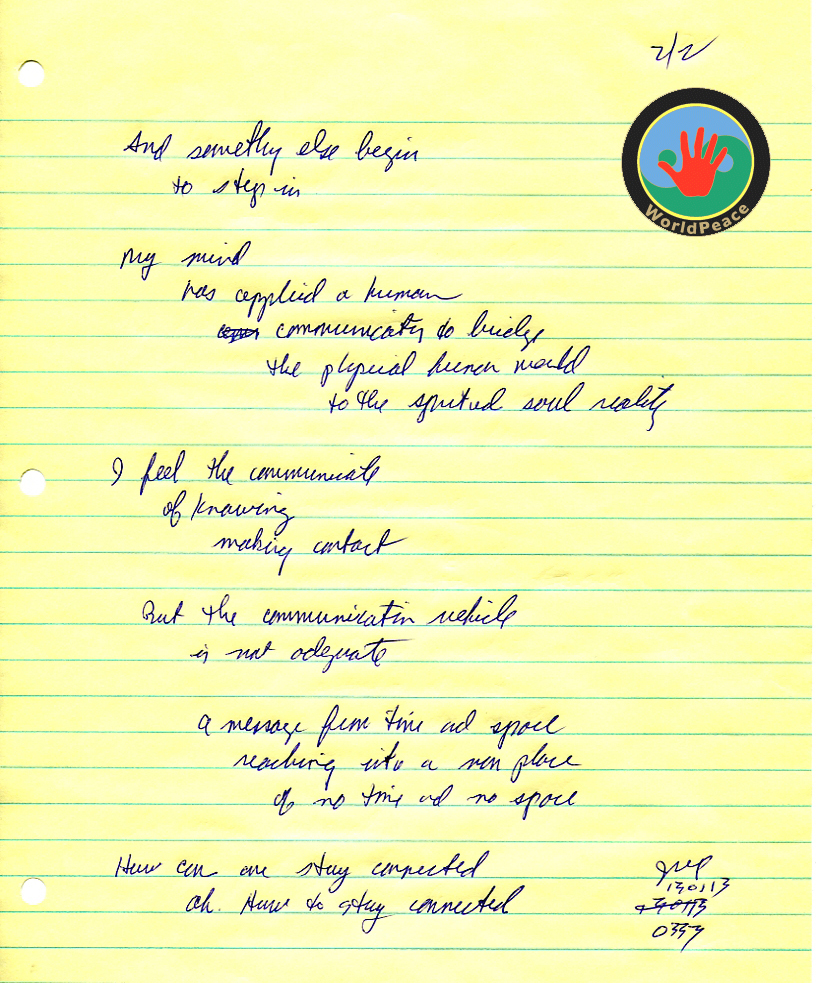 2/2
WorldPeace
And somethy else begin
to step in
My mind
has applied a human
communicatn to bridge
the physical human world
to the spirited soul reality
I feel the communicate
of knowing
making contact
But the communication vehicle
is not adequate
a message from time ad space
reaching into a non place
of no time ad no space
How can one stay connected
Oh. How to stay connected
130113
0357